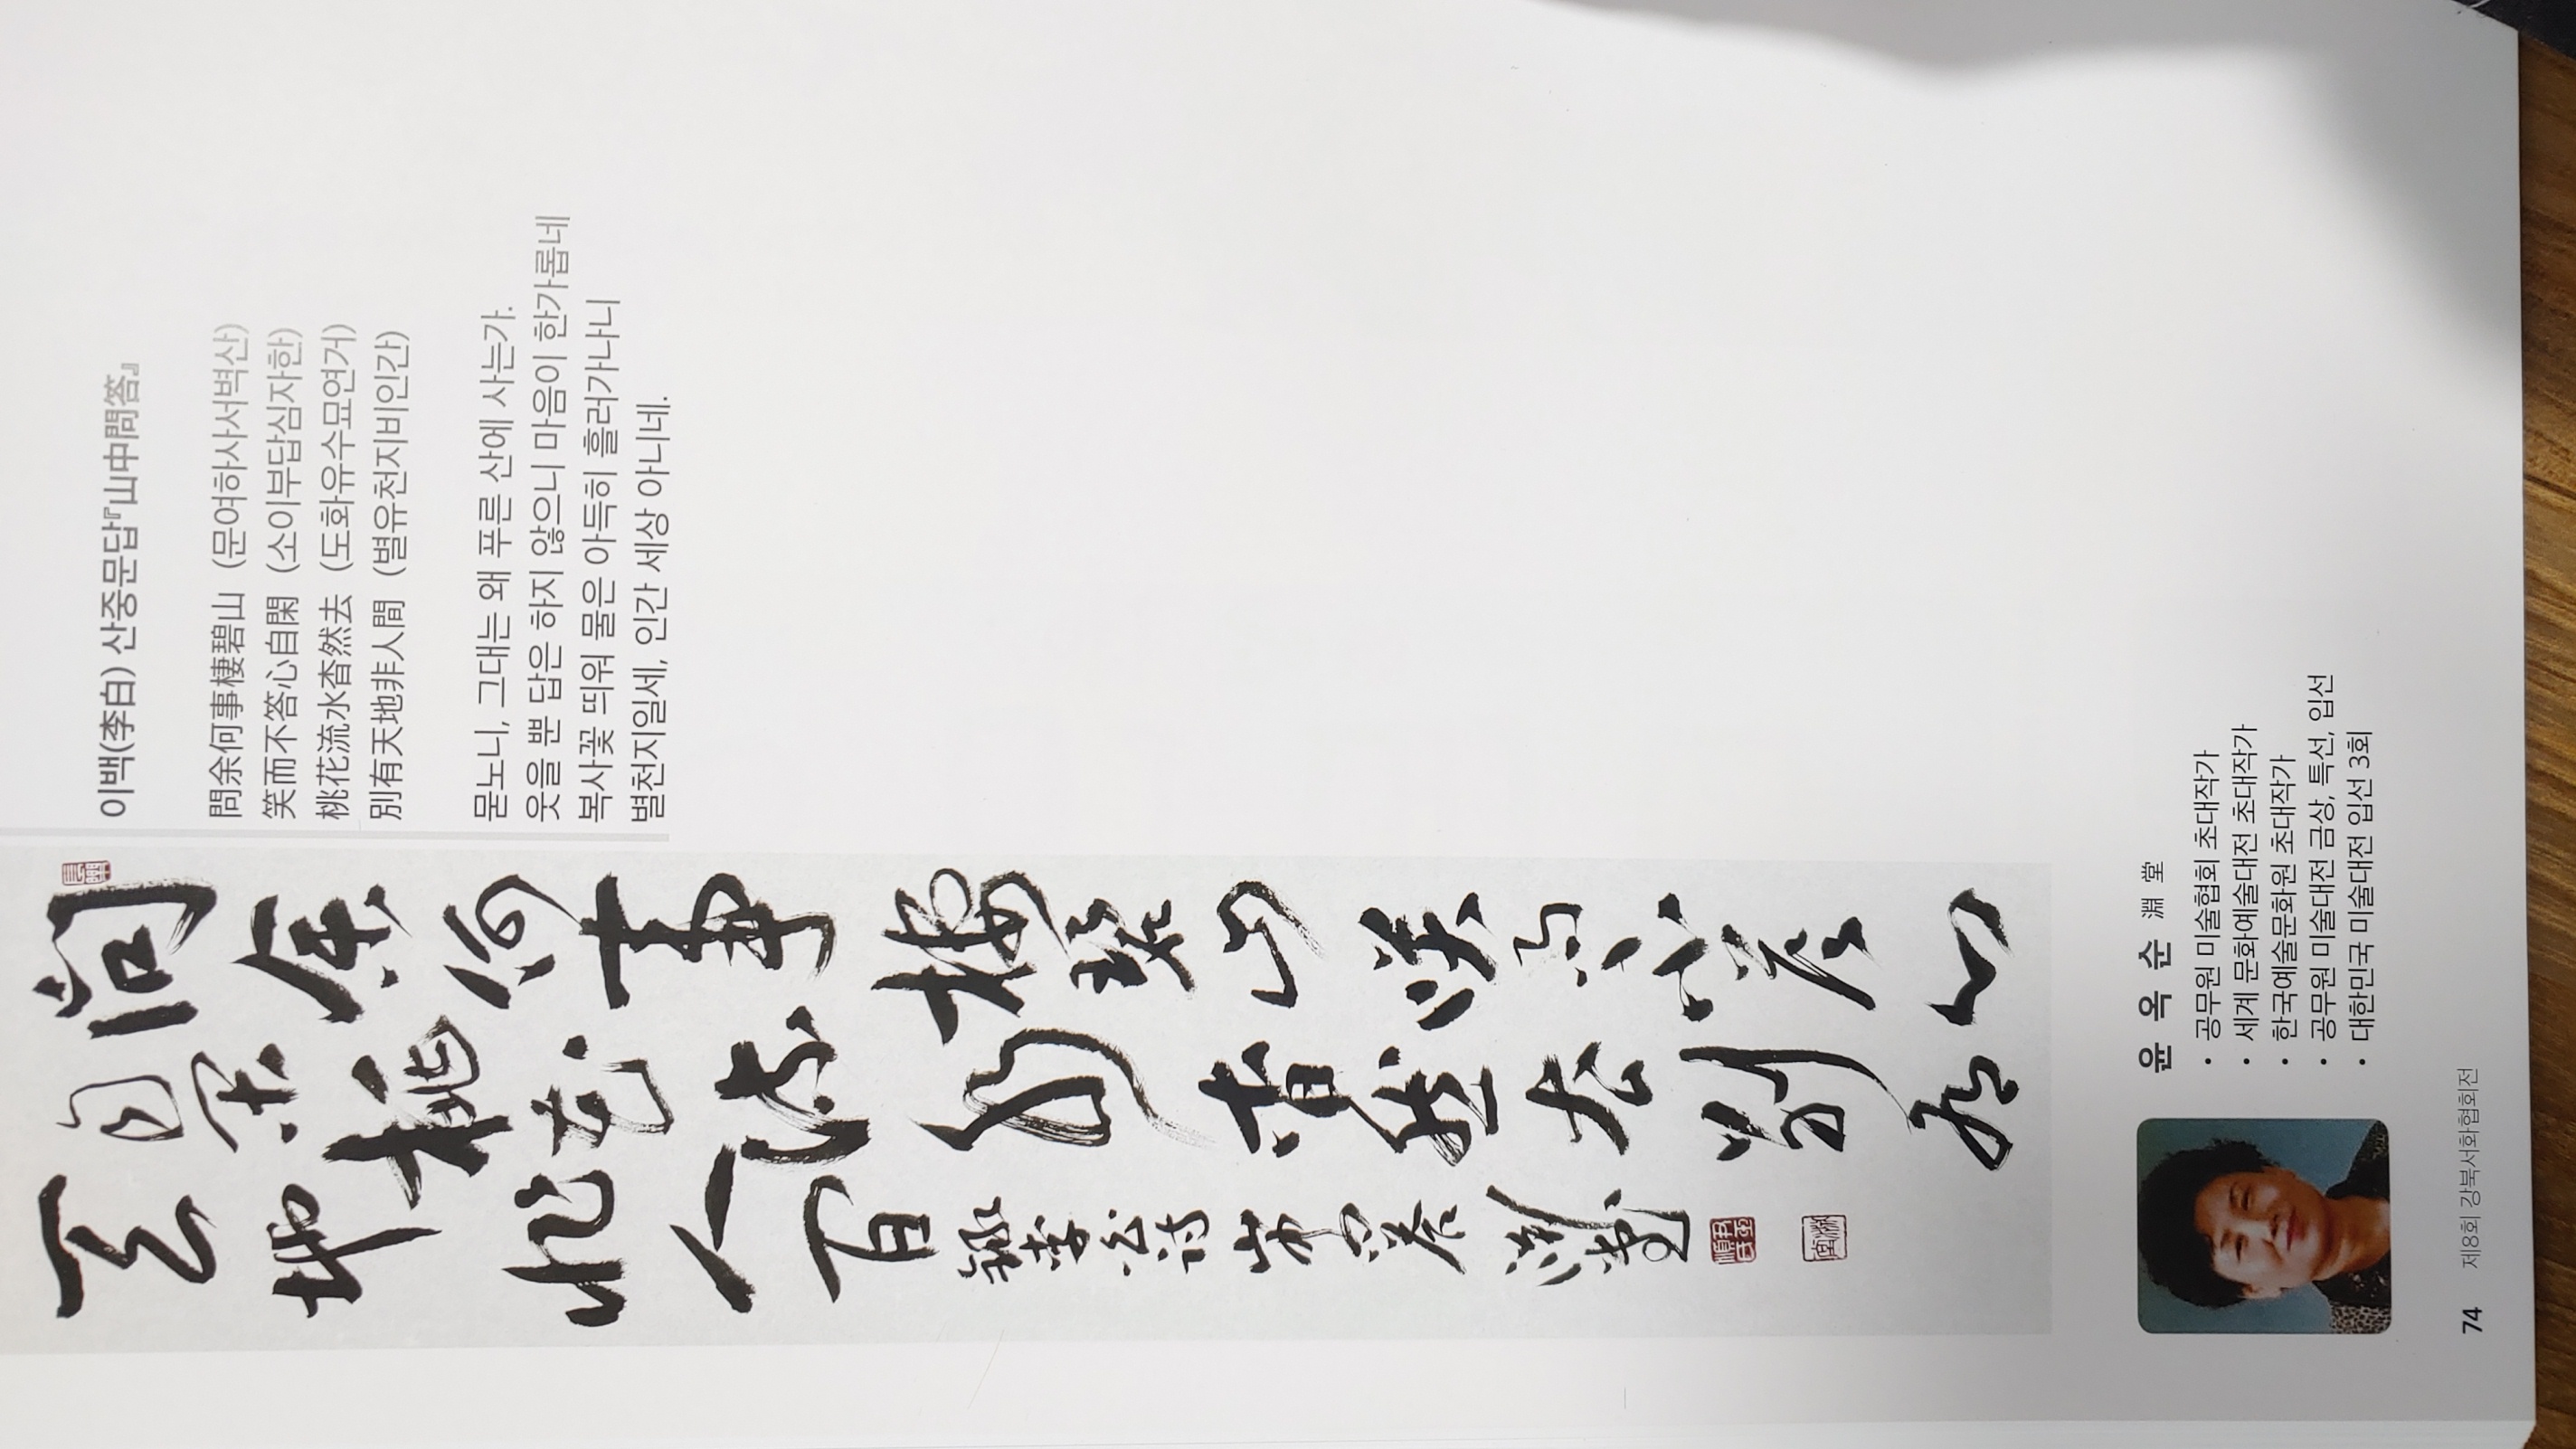 이백(李白) 산중문답『山中問答』
問余何事棲碧山 (문여하사서벽산)
笑而不答心自閑 (소이부답심자한)
桃花流水杳然去 (도화유수묘연거)
別有天地非人間 (별유천지비인간)
묻노니, 그대는 왜 푸른 산에 사는가.
웃을 뿐 답은 하지 않으니 마음이 한가롭네
복사꽃 띄워 물은 아득히 흘러가나니
별천지일세, 인간 세상 아니네.
問余何事棲碧山笑而不答心
自閑桃花流水杳然去別有
天地非人間 錄李白詩
윤옥순 淵堂
• 공무원 미술협회 초대작가
• 세계 문화예술대전 초대작가
• 한국예술문화원 초대작가
• 공무원 미술대전 금상, 특선, 입선
• 대한민국 미술대전 입선 3회
74 제8회 강북서화협회전